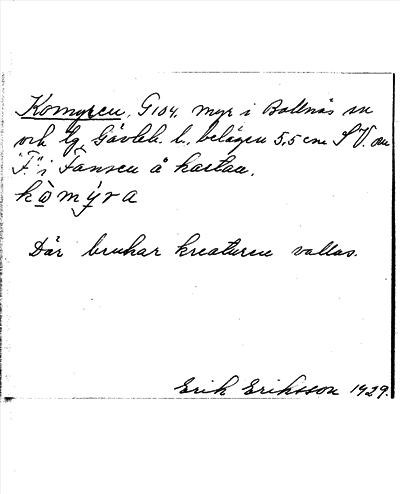 Komyren, G104, myr i Bollnäs sn
och lg, Gävleb. l., belägen 5,5 cm SV. om
"F" i Fansen å kartan.
kòmýra
Där brukar kreaturen vallas.
Erik Eriksson 1929.